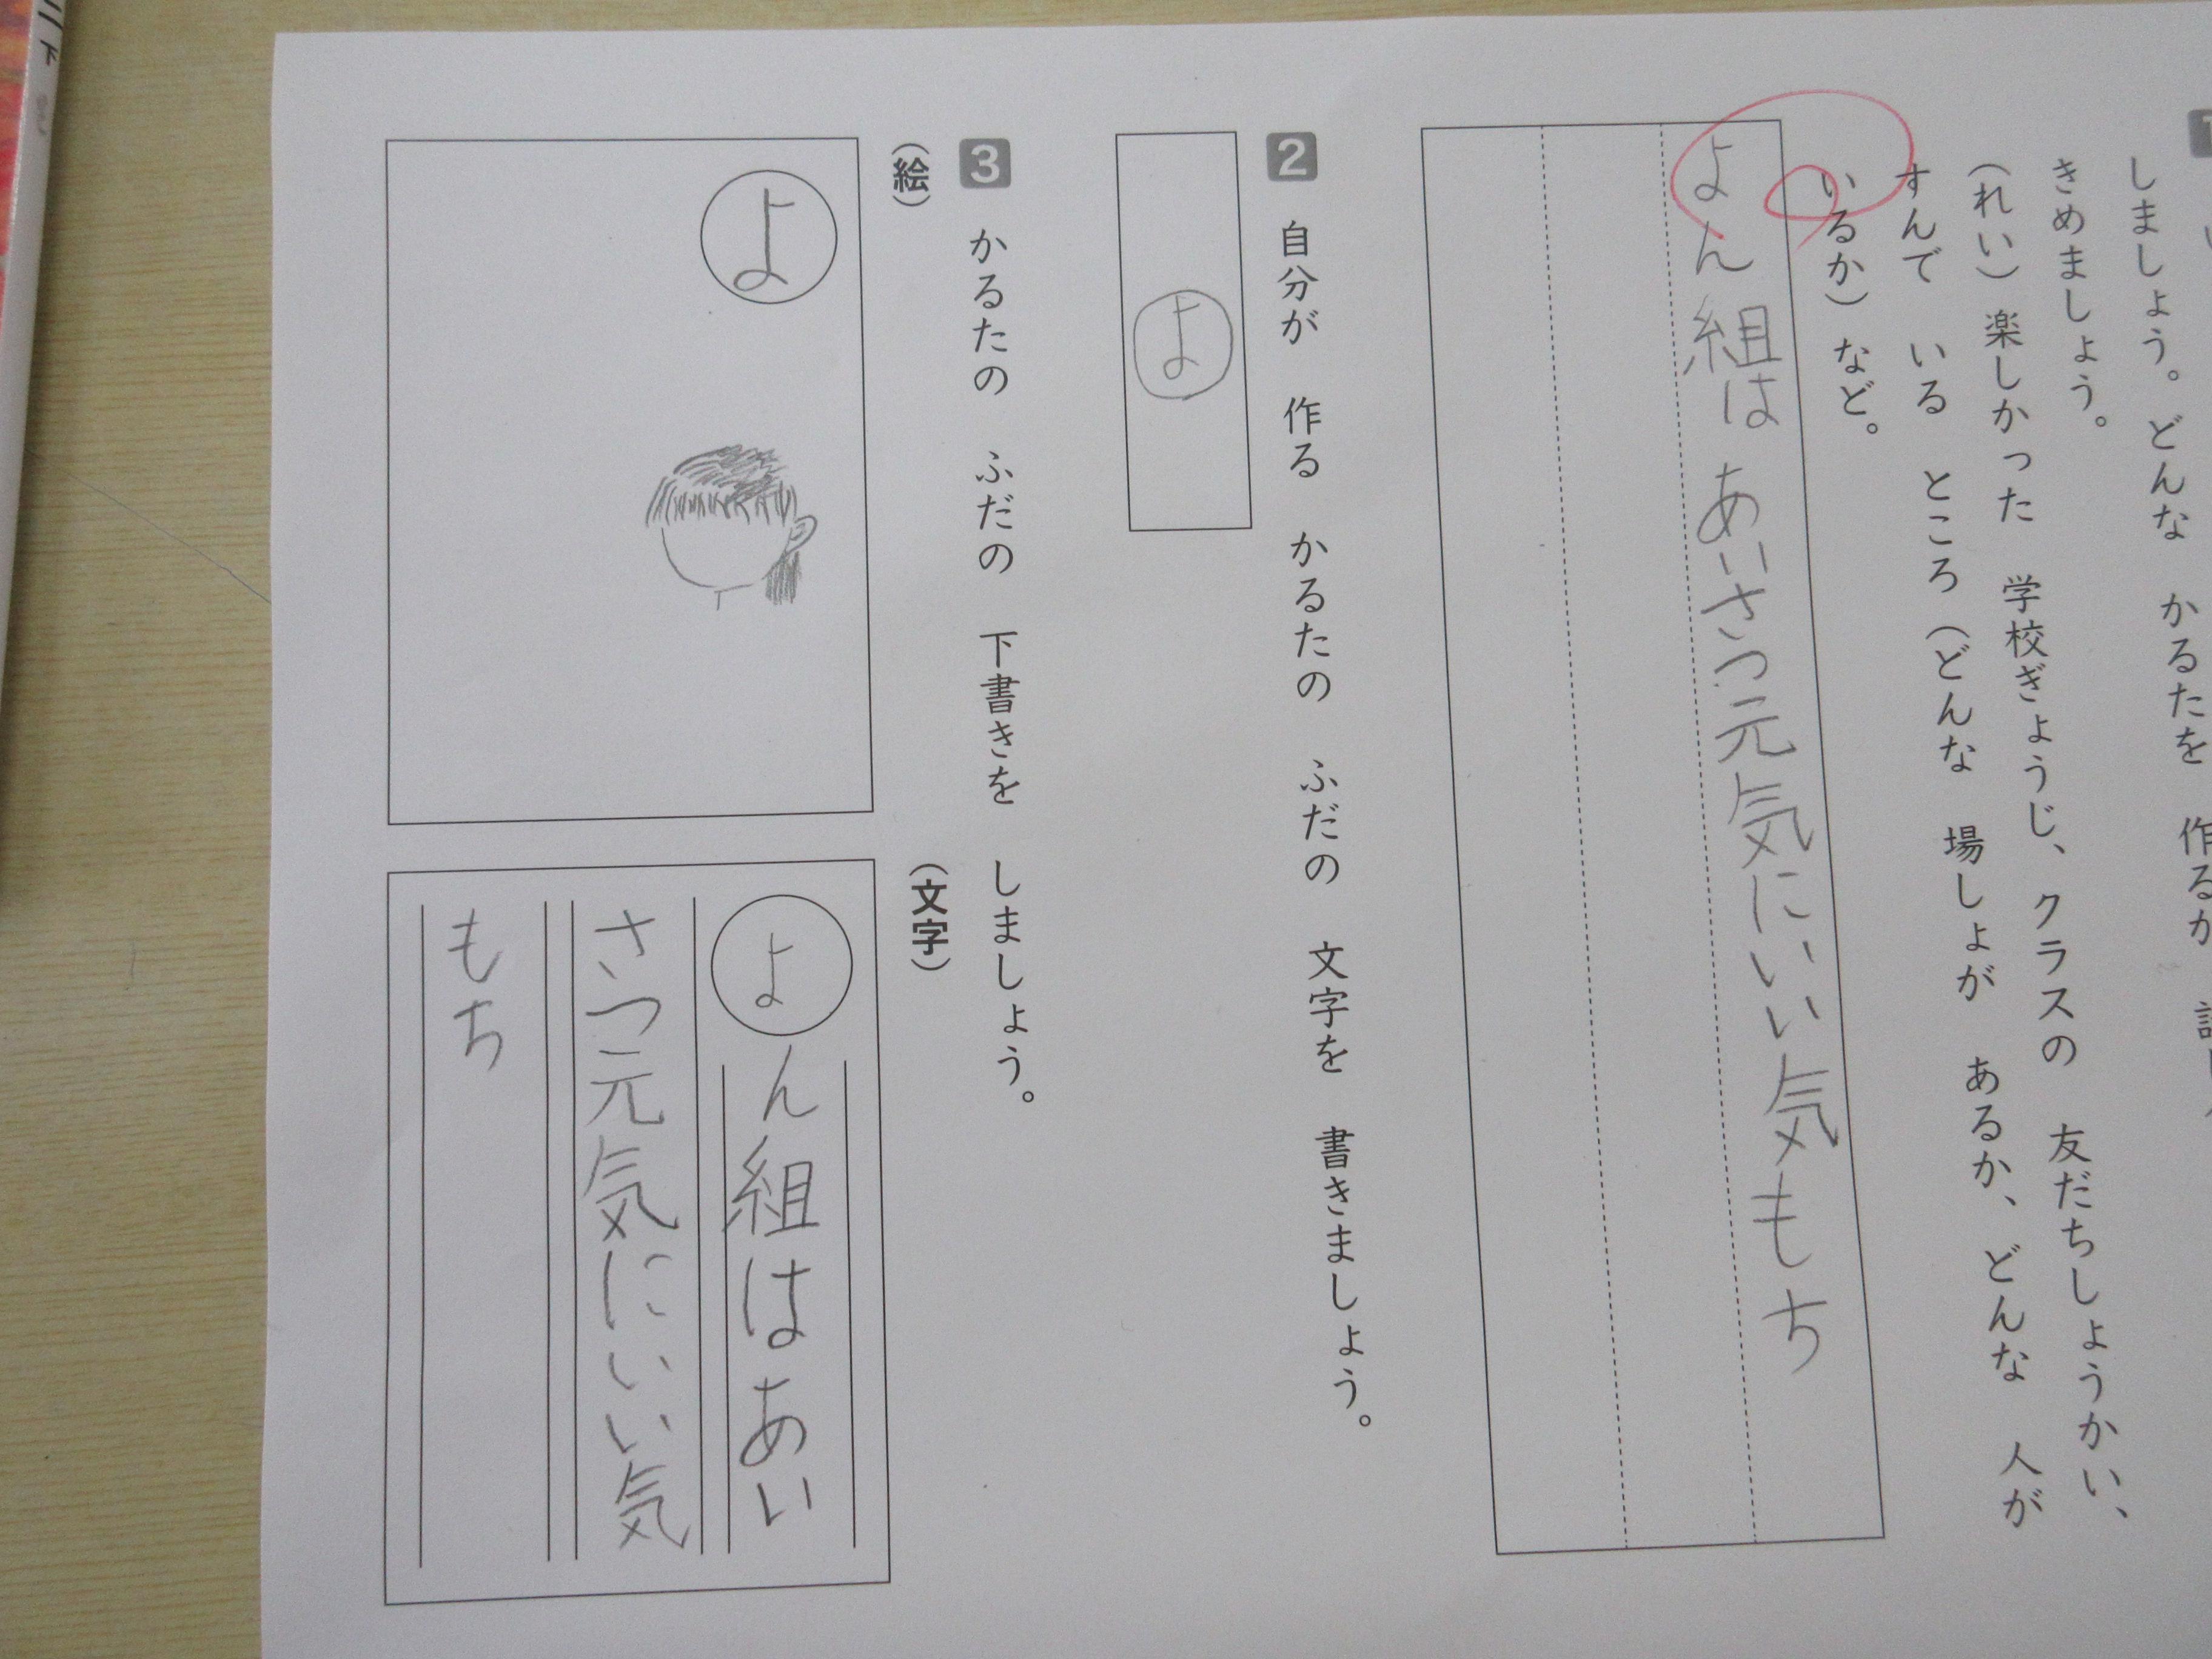 しましょう。どんな かるたを 作るか
きめましょう。
(れい) 楽しかった 学校ぎょうじ、クラスの 友だちしょうかい、
すんで いる ところ (どんな 場しょが あるか、どんな 人が
いるか) など。
よん組は あいさつ元気にいい気もち
2 自分が 作る かるたの ふだの 文字を 書きましょう。
よ
3 かるたの ふだの 下書きを しましょう。
(絵)
よ
(文字)
よん組はあい
さつ元気にいい気
もち
下